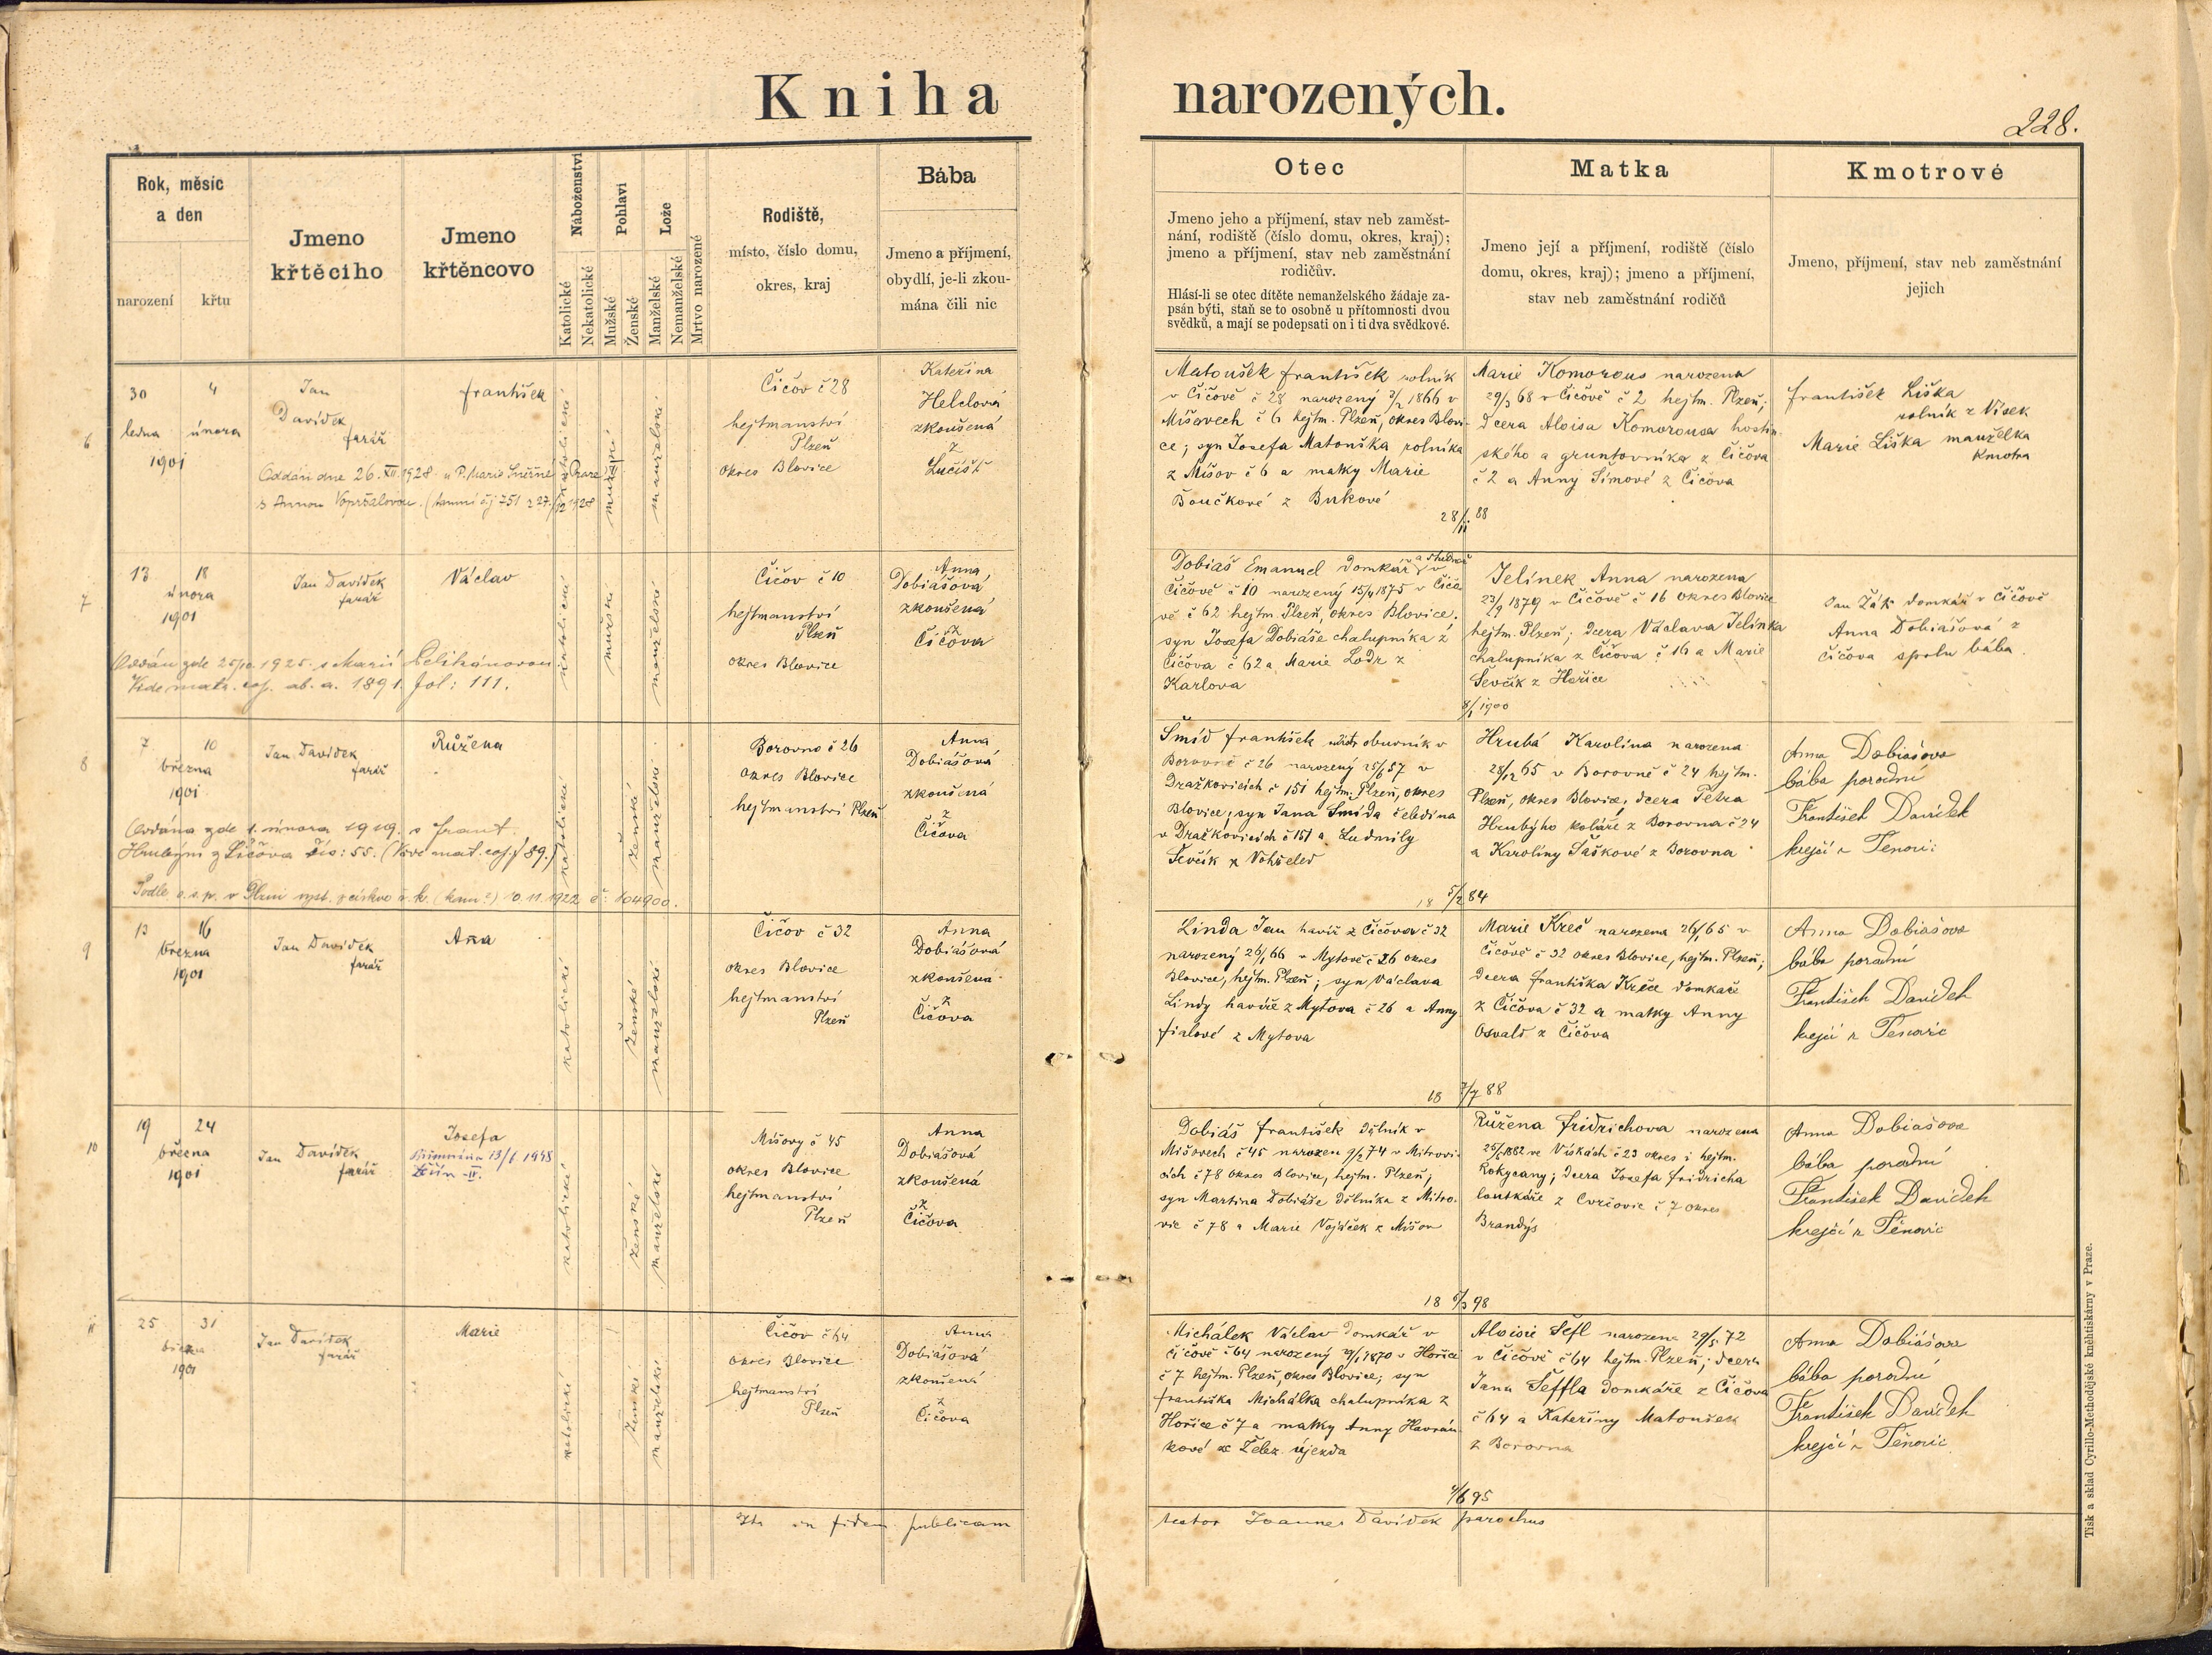 Kniha narozených.
228.
Rok, měsíc
a den
narození
křtu
Jmeno
křtěcího
Jmeno
křtěncovo
Náboženství
Katolické
Nekatolické
Pohlaví
Mužské
Ženské
Lože
Manželské
Nemanželské
Mrtvo narozené
Rodiště,
místo, číslo domu,
okres, kraj
Bába
Jmeno a příjmení,
obydlí, je-li zkou-
mána čili nic
Otec
Jmeno jeho a příjmení, stav neb zaměst-
nání, rodiště (číslo domu, okres, kraj);
jmeno a příjmení, stav neb zaměstnání
rodičův.
Hlásí-li se otec dítěte nemanželského žádaje za-
psán býti, staň se to osobně u přítomnosti dvou
svědků, a mají se podepsati on i ti dva svědkové.
Matka
Jmeno její a příjmení, rodiště (číslo
domu, okres, kraj); jmeno a příjmení,
stav neb zaměstnání rodičů
Kmotrové
Jmeno, příjmení, stav neb zaměstnání
jejich
6
30
4
ledna
února
1901
Jan
Davídek
farář
František
Oddán dne 26. XII. 1928 u P. Marie Sněžné
s Annou
katolické
mužské
manželské
Čičov č 28
hejtmanství
Plzeň
okres Blovice
Kateřina
Helclová
zkoušená
z
Lučišť
Matoušek František rolník
v Čičově č 28 narozený 3/2 1866 v
Míšovech č 6 hejtm. Plzeň, okres Blovi-
ce; syn Josefa Matouška rolníka
z Míšov č 6 a matky Marie
Boučkové z Bukové
28/11 88
Marie Komorous narozena
29/3 68 v Čičově č 2 hejtm. Plzeň;
dcera Aloisa Komorousa hostin-
ského a gruntovníka z Čičova
č 2 a Anny Šimové z Čičova
František Liška
rolník z Vísek
Marie Liška manželka
kmotra
7
13
18
února
1901
Jan Davídek
farář
Václav
Oddán zde 1925 s Marií
Vide matr. cop. ab. a. 1891. fol: 111.
katolické
mužské
manželské
Čičov č 10
hejtmanství
Plzeň
okres Blovice
Anna
Dobiášová
zkoušená
z
Čičova
Dobiáš Emanuel domkář v
Čičově č 10 narozený 15/4 1875 v Čičo-
vě č 62 hejtm Plzeň, okres Blovice.
syn Josefa Dobiáše chalupníka z
Čičova č 62 a Marie Lodr z
Karlova
1900
Jelínek Anna narozena
23/9 1879 v Čičově č 16 okres Blovice
hejtm. Plzeň; dcera Václava Jelínka
chalupníka z Čičova č 16 a Marie
Ševčík z Hořice
Jan Žák domkář v Čičově
Anna Dobiášová z
Čičova spolu bába.
8
7
10
března
1901
Jan Davídek
farář
Růžena
Oddána zde 1. února 1919. s Frant.
Hrubým z Čičova čís: 55.
Podle o.s.p. v Plzni vyst. z církve ř. k. 10.11.1922 č: 104900.
katolické
ženské
manželské
Borovno č 26
okres Blovice
hejtmanství Plzeň
Anna
Dobiášová
zkoušená
z
Čičova
Šmíd František mistr obuvník v
Borovně č 26 narozený 25/6 57 v
Dražkovicích č 151 hejtm. Plzeň, okres
Blovice; syn Jana Šmída čeledína
v Dražkovicích č 151 a Ludmily
Ševčík z
18 5/2 84
Hrubá Karolína narozena
28/12 65 v Borovně č 24 hejtm.
Plzeň, okres Blovice, dcera Petra
Hrubýho koláře z Borovna č 24
a Karolíny Šaškové z Borovna
Anna Dobiašova
bába porodní
František Davídek
krejčí z Těnovic
9
13
16
března
1901
Jan Davídek
farář
Anna
katolické
ženské
manželské
Čičov č 32
okres Blovice
hejtmanství
Plzeň
Anna
Dobiášová
zkoušená
z
Čičova
Linda Jan havíř z Čičova č 32
narozený 26/1 66 v Mytově č 26 okres
Blovice, hejtm. Plzeň; syn Václava
Lindy havíře z Mytova č 26 a Anny
Fialové z Mytova
18 7/7 88
Marie Kreč narozena 26/1 65 v
Čičově č 32 okres Blovice, hejtm. Plzeň;
dcera Františka Kreče domkáře
z Čičova č 32 a matky Anny
Osvald z Čičova
Anna Dobiašova
bába porodní
František Davídek
krejčí z Těnovic
10
19
24
března
1901
Jan Davídek
farář
Josefa
13/6 1948
katolické
ženské
manželské
Míšovy č 45
okres Blovice
hejtmanství
Plzeň
Anna
Dobiášová
zkoušená
z
Čičova
Dobiáš František dělník v
Míšovech č 45 narozen 9/2 74 v Mitrovi-
cích č 78 okres Blovice, hejtm. Plzeň;
syn Martina Dobiáše dělníka z Mitro-
vic č 78 a Marie Vojáček z Míšov
18 6/3 98
Růžena Fridrichova narozena
25/6 1882 ve Vískách č 23 okres i hejtm.
Rokycany; dcera Josefa Fridricha
loutkáře z Cvrčovic č 7 okres
Brandýs
Anna Dobiašova
bába porodní
František Davídek
krejčí z Těnovic
11
25
31
března
1901
Jan Davídek
farář
Marie
katolické
ženské
manželské
Čičov č 64
okres Blovice
hejtmanství
Plzeň
Anna
Dobiášová
zkoušená
z
Čičova
Michálek Václav domkář v
Čičově č 64 narozený 1870 v Hořici
č 7 hejtm. Plzeň, okres Blovice; syn
Františka Michálka chalupníka z
Hořice č 7 a matky Anny Havrán-
kové z Želez. újezda
6 95
Aloisie Šefl narozena 29/5 72
v Čičově č 64 hejtm. Plzeň; dcera
Jana Šeffla domkáře z Čičova
č 64 a Kateřiny Matoušek
z Borovna
Anna Dobiášova
bába porodní
František Davídek
krejčí z Těnovic
Ita in fidem publicam
testor Joannes Davídek parochus
Tisk a sklad Cyrillo-Methodějské kněhtiskárny v Praze.